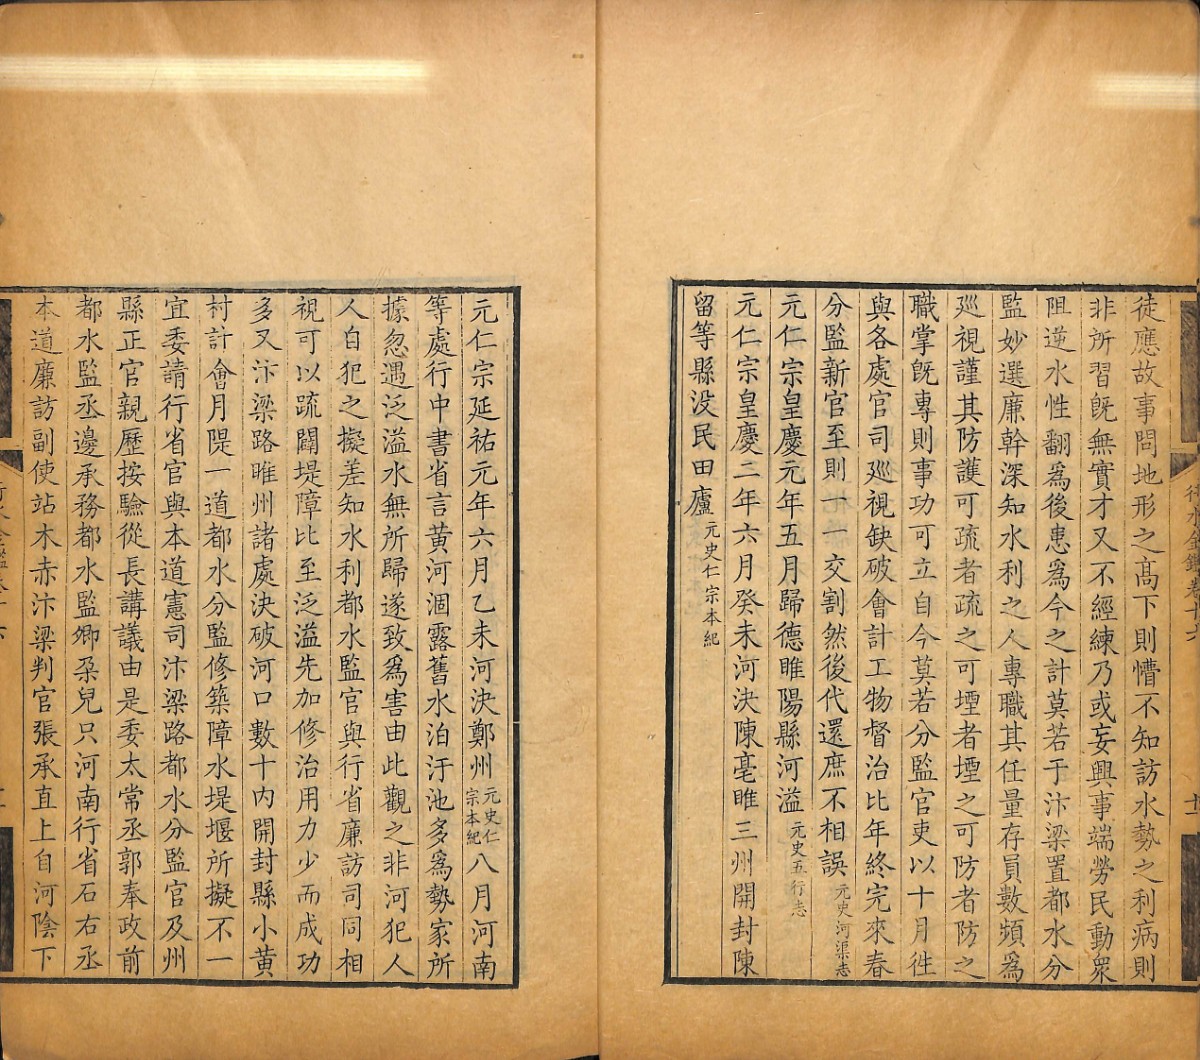 徒應故事問地形之髙下則懵不知訪水勢之利病則
非所習旣無實才又不經練乃或妄興事端勞民動衆
阻逆水性翻爲後患爲今之計莫若于汴梁置都水分
監妙選廉幹深知水利之人專職其任量存員數頻爲
廵視謹其防護可疏者疏之可堙者堙之可防者防之
職掌旣專則事功可立自今莫若分監官吏以十月徃
與各處官司廵視缺破會計工物督治比年終完來春
分監新官至則一一交割然後代還庶不相誤元史河渠志
元仁宗皇慶元年五月歸德睢陽縣河溢元史五行志
元仁宗皇慶二年六月癸未河決陳亳睢三州開封陳
留等縣没民田廬元史仁宗本紀
元仁宗延祐元年六月乙未河決鄭州元史仁宗本紀八月河南
等處行中書省言黄河涸露舊水泊汙池多爲勢家所
據忽遇泛溢水無所歸遂致爲害由此觀之非河犯人
人自犯之擬差知水利都水監官與行省廉訪司同相
視可以疏闢堤障比至泛溢先加修治用力少而成功
多又汴梁路睢州諸處決破河口數十内開封縣小黄
村計會月隄一道都水分監修築障水堤堰所擬不一
宜委請行省官與本道憲司汴梁路都水分監官及州
縣正官親歷按驗從長講議由是委太常丞郭奉政前
都水監丞邊承務都水監卿朶兒只河南行省石右丞
本道廉訪副使站木赤汴梁判官張承直上自河陰下